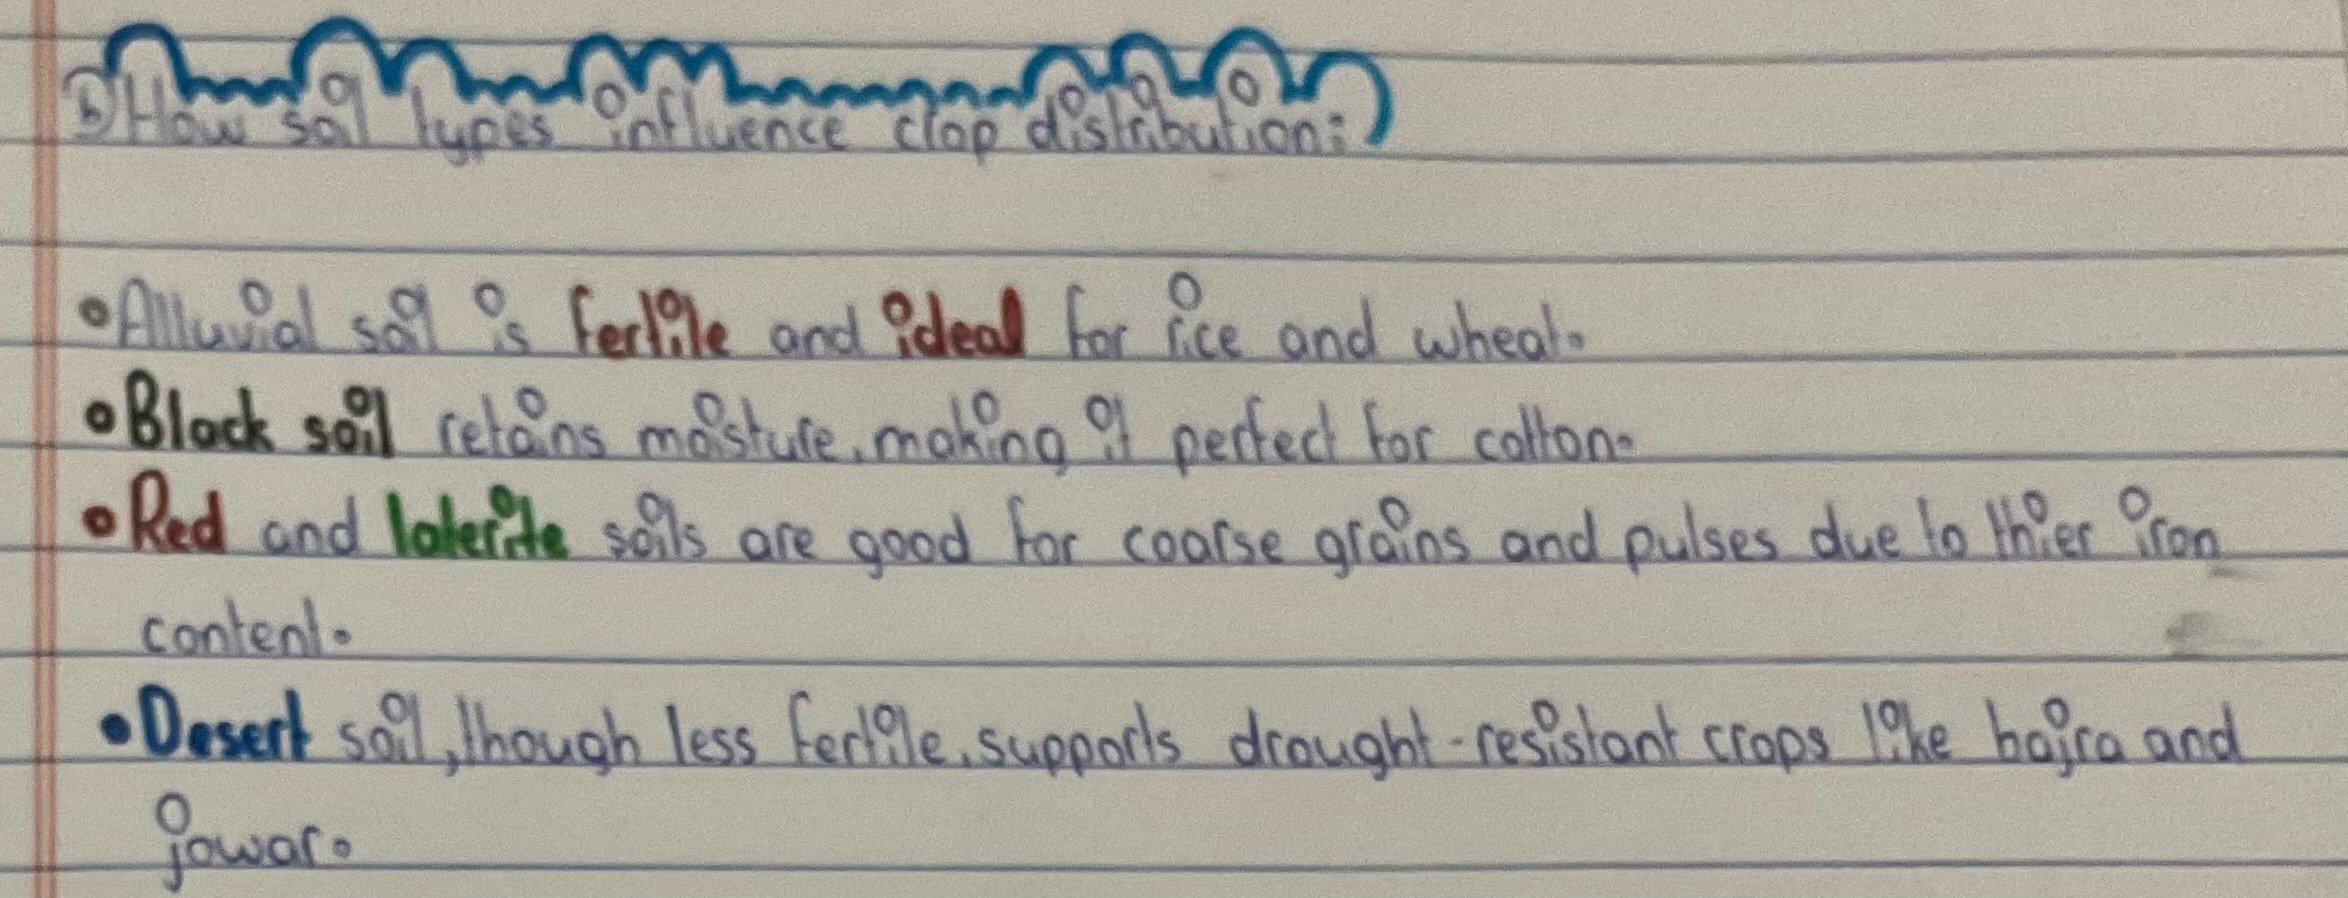 b) How soil types influence crop distribution:
• Alluvial soil is fertile and ideal for rice and wheat.
• Black soil retains moisture, making it perfect for cotton.
• Red and laterite soils are good for coarse grains and pulses due to thier iron
content.
• Desert soil, though less fertile, supports drought-resistant crops like bajra and
jowar.